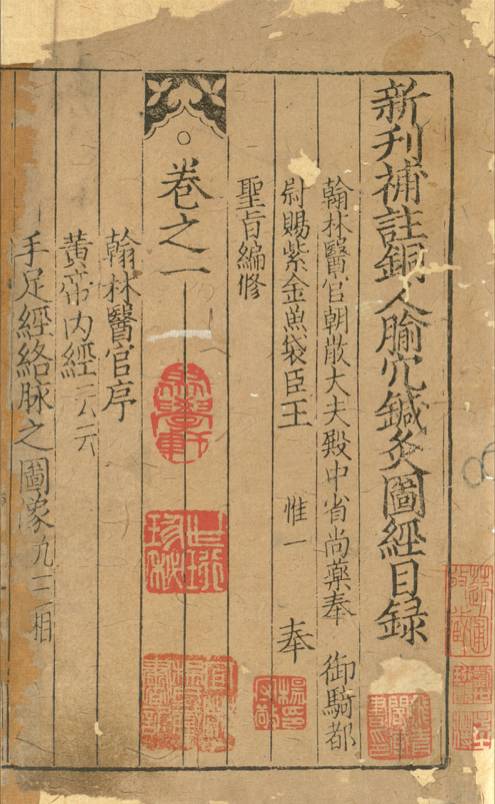 新刋補註銅人腧穴鍼灸圖經目録
翰林醫官朝散大夫殿中省尚藥奉 御騎都
尉賜紫金魚袋臣王 惟一 奉
聖旨編修
卷之一
翰林醫官序
黄帝内經云云
手足經絡脉之圖象九三相